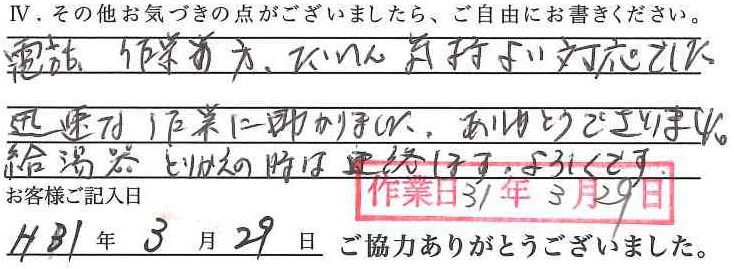 Ⅳ．その他お気づきの点がございましたら、ご自由にお書きください。
電話、作業の方、たいへん気持よい対応でした
迅速な作業に助かりました。ありがとうございました。
給湯器とりかえの時は連絡します。よろしくです.
お客様ご記入日
作業日31年3月29日
H31年 3月 29日 ご協力ありがとうございました。